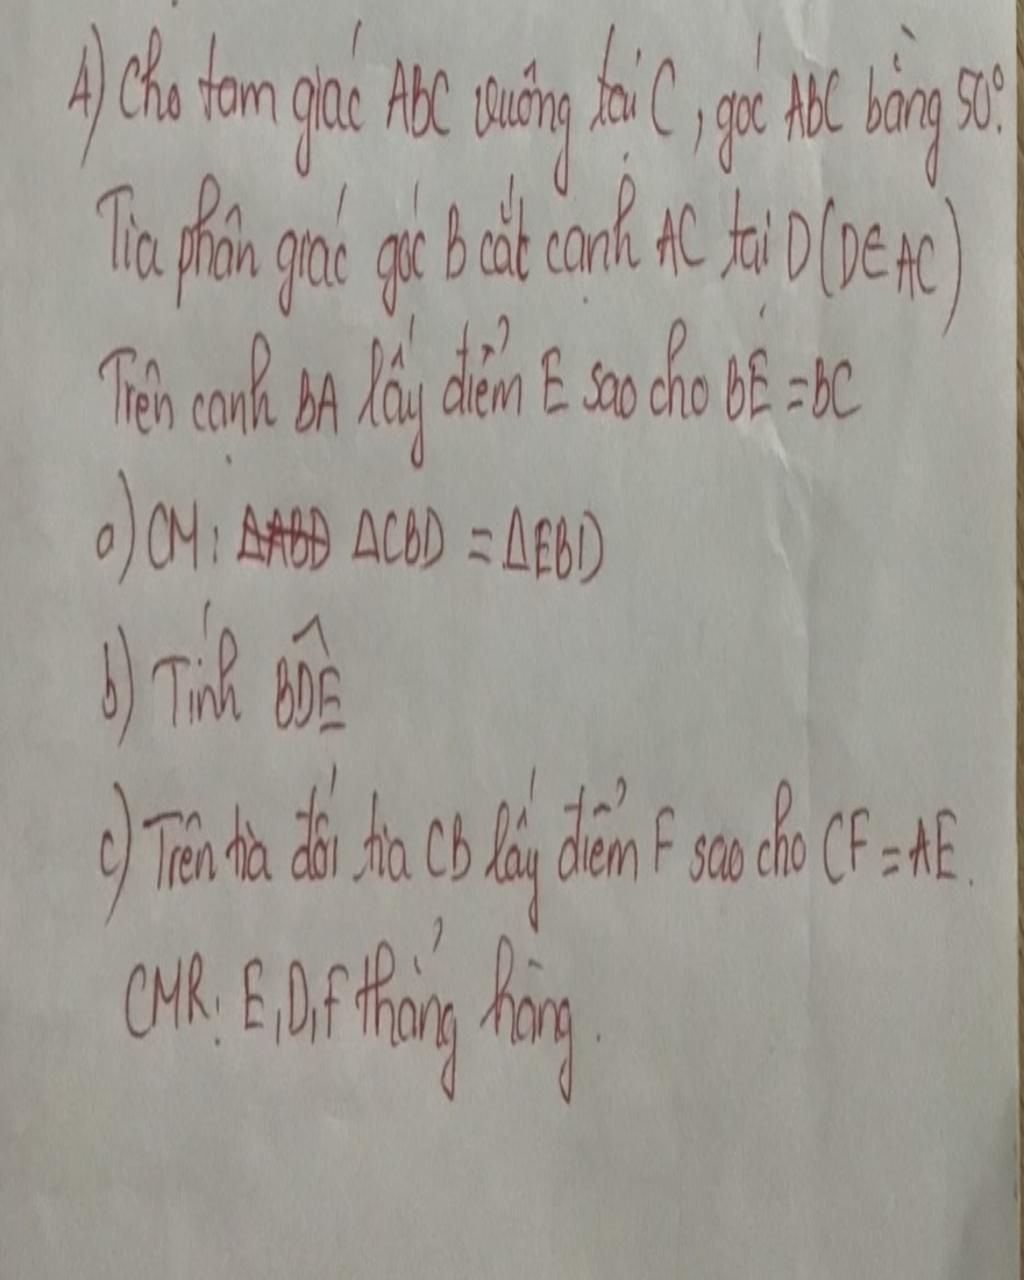 4) Cho tam giác ABC vuông tại C, góc ABC bằng 50°.
Tia phân giác góc B cắt cạnh AC tại D (D∈AC)
Trên cạnh BA lấy điểm E sao cho BE = BC
a) CM: ΔABD ΔCBD = ΔEBD
b) Tính BDÊ
c) Trên tia đối tia CB lấy điểm F sao cho CF = AE.
CMR: E, D, F thẳng hàng.